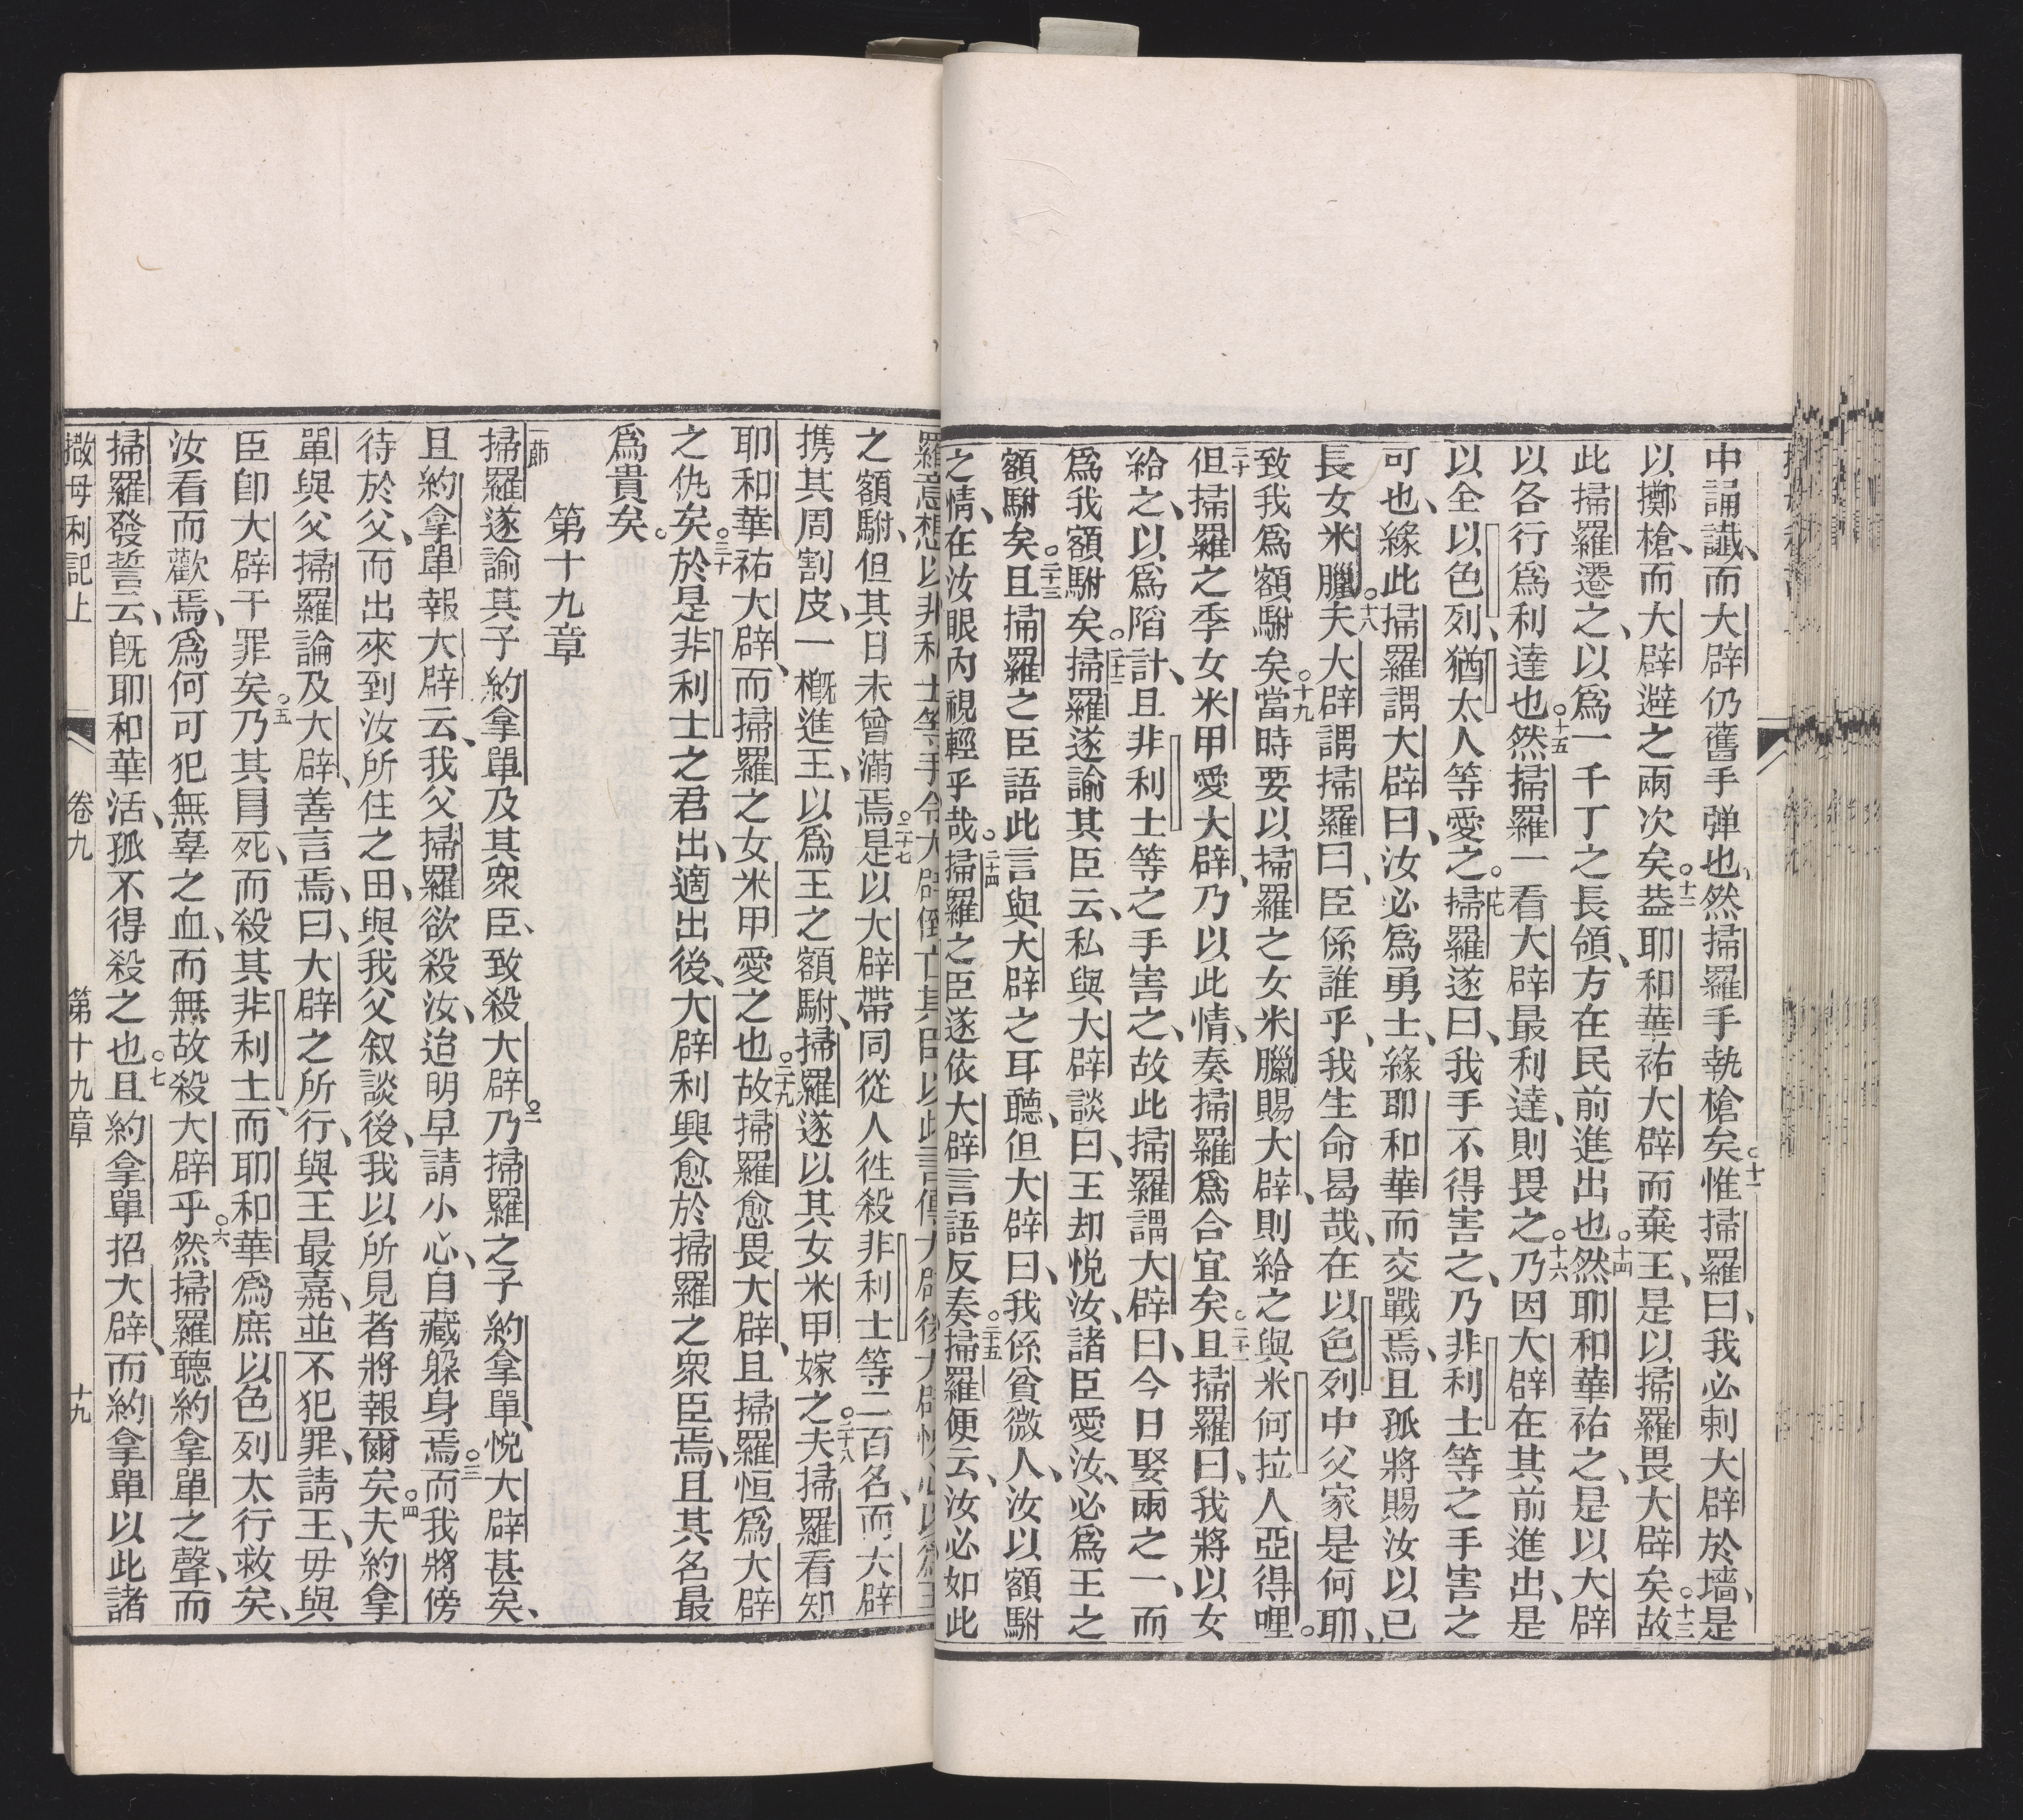 中誦讖、而大辟仍舊手弹也、然掃羅手執槍矣。十一惟掃羅曰、我必刺大辟於墻、是
以擲槍、而大辟避之兩次矣。十二葢耶和華祐大辟而棄王、是以掃羅畏大辟矣。十三故
此掃羅遷之、以爲一千丁之長領、方在民前進出也。十四然耶和華祐之、是以大辟
以各行爲利達也。十五然掃羅一看大辟最利達、則畏之。十六乃因大辟在其前進出、是
以全以色列、猶太人等愛之。十七掃羅遂曰、我手不得害之、乃非利士等之手害之
可也、緣此掃羅謂大辟曰、汝必爲勇士、緣耶和華而交戰焉、且孤將賜汝以已
長女米臘。十八夫大辟謂掃羅曰、臣係誰乎、我生命曷哉、在以色列中父家是何耶、
致我爲額駙矣。十九當時要以掃羅之女米臘賜大辟、則給之與米何拉人亞得哩。
二十但掃羅之季女米甲愛大辟、乃以此情、奏掃羅爲合宜矣。二十一且掃羅曰、我將以女
給之、以爲陷計、且非利士等之手害之、故此掃羅謂大辟曰、今日娶兩之一、而
爲我額駙矣。二十二掃羅遂諭其臣云、私與大辟談曰、王却悅汝、諸臣愛汝、必爲王之
額駙矣。二十三且掃羅之臣語此言與大辟之耳聽、但大辟曰、我係貧微人、汝以額駙
之情、在汝眼內視輕乎哉。二十四掃羅之臣遂依大辟言語反奏。二十五掃羅便云、汝必如此
之額駙、但其日未曾滿焉。二十七是以大辟帶同從人徃殺非利士等二百名、而大辟
携其周割皮、一槪進王、以爲王之額駙、掃羅遂以其女米甲嫁之。二十八夫掃羅看知
耶和華祐大辟、而掃羅之女米甲愛之也。二十九故掃羅愈畏大辟、且掃羅恒爲大辟
之仇矣。三十於是非利士之君出、適出後、大辟利興愈於掃羅之衆臣焉、且其名最
爲貴矣。
第十九章
一節掃羅遂諭其子約拿單及其衆臣、致殺大辟。二乃掃羅之子約拿單、悅大辟甚矣、
且約拿單報大辟云、我父掃羅欲殺汝、迨明早請小心、自藏躲身焉。三而我將傍
待於父、而出來到汝所住之田、與我父叙談後、我以所見者將報爾矣。四夫約拿
單與父掃羅論及大辟、善言焉、曰、大辟之所行、與王最嘉、並不犯罪、請王、毋與
臣卽大辟干罪矣。五乃其冐死、而殺其非利士、而耶和華爲庶以色列太行救矣、
汝看而歡焉、爲何可犯無辜之血、而無故殺大辟乎。六然掃羅聽約拿單之聲、而
掃羅發誓云、旣耶和華活、孤不得殺之也。七且約拿單招大辟、而約拿單以此諸
撒母利記上 卷九 第十九章 十九